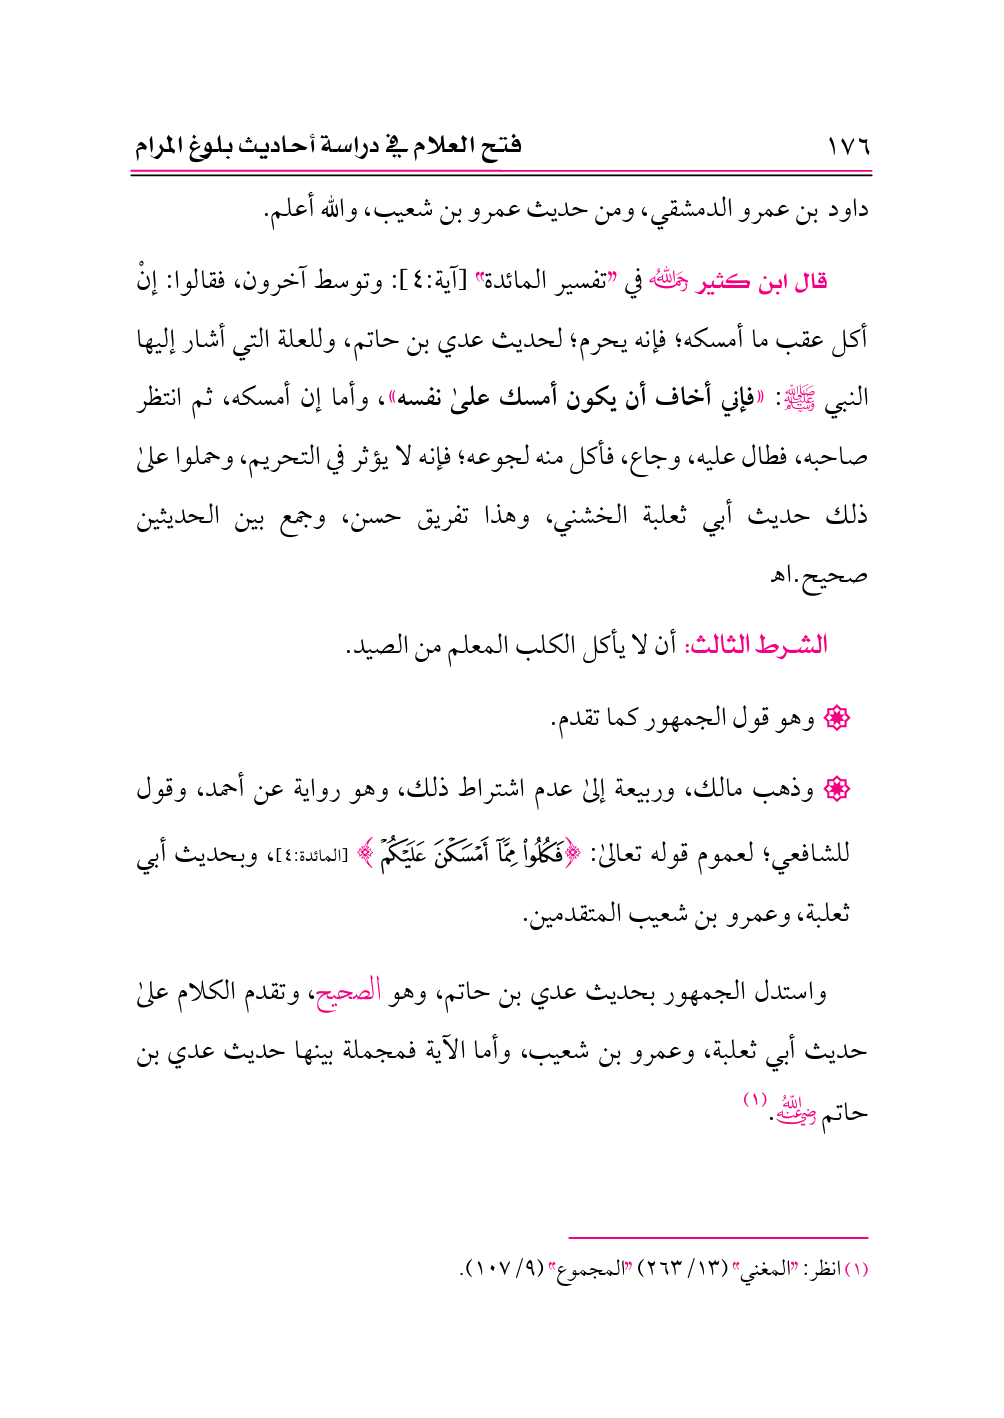 ١٧٦ فتح العلام في دراسة أحاديث بلوغ المرام
داود بن عمرو الدمشقي، ومن حديث عمرو بن شعيب، والله أعلم.
قال ابن كثير رحمه الله في "تفسير المائدة" [آية:٤]: وتوسط آخرون، فقالوا: إنْ
أكل عقب ما أمسكه؛ فإنه يحرم؛ لحديث عدي بن حاتم، وللعلة التي أشار إليها
النبي ﷺ: «فإني أخاف أن يكون أمسك علىٰ نفسه»، وأما إن أمسكه، ثم انتظر
صاحبه، فطال عليه، وجاع، فأكل منه لجوعه؛ فإنه لا يؤثر في التحريم، وحملوا علىٰ
ذلك حديث أبي ثعلبة الخشني، وهذا تفريق حسن، وجمع بين الحديثين
صحيح.اهـ
الشرط الثالث: أن لا يأكل الكلب المعلم من الصيد.
وهو قول الجمهور كما تقدم.
وذهب مالك، وربيعة إلىٰ عدم اشتراط ذلك، وهو رواية عن أحمد، وقول
للشافعي؛ لعموم قوله تعالىٰ: ﴿فَكُلُوا۟ مِمَّآ أَمۡسَكۡنَ عَلَيۡكُمۡ﴾ [المائدة:٤]، وبحديث أبي
ثعلبة، وعمرو بن شعيب المتقدمين.
واستدل الجمهور بحديث عدي بن حاتم، وهو الصحيح، وتقدم الكلام علىٰ
حديث أبي ثعلبة، وعمرو بن شعيب، وأما الآية فمجملة بينها حديث عدي بن
حاتم رضي الله عنه.(١)
(١) انظر: "المغني" (١٣/ ٢٦٣) "المجموع" (٩/ ١٠٧).